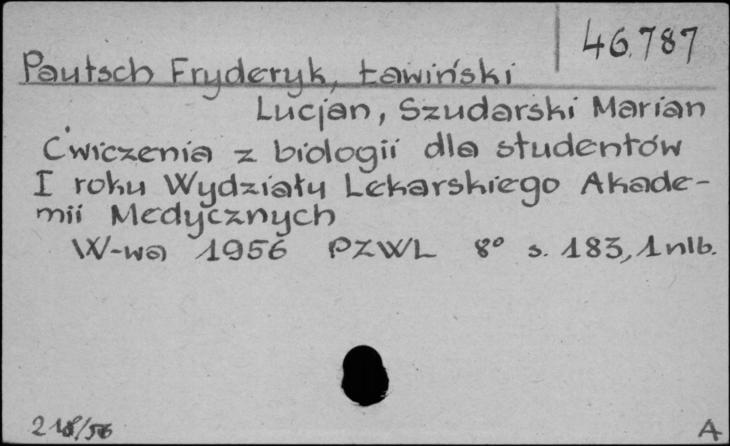 46.787
Pautsch Fryderyk, Ławiński
Lucjan, Szudarski Marian
Ćwiczenia z biologii dla studentów
I roku Wydziału Lekarskiego Akade-
mii Medycznych
W-wa 1956 PZWL 8° s. 183, 1 nlb.
218/56
A